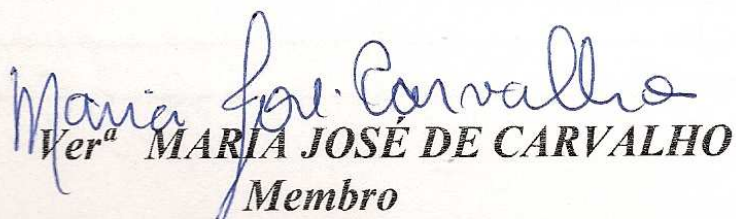 Maria José Carvalho
Verª MARIA JOSÉ DE CARVALHO
Membro